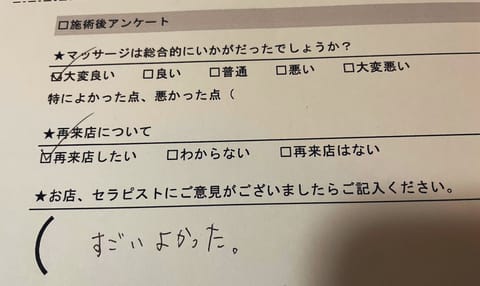 □施術後アンケート
★マッサージは総合的にいかがだったでしょうか?
☑大変良い □良い □普通 □悪い □大変悪い
特によかった点、悪かった点(
★再来店について
☑再来店したい □わからない □再来店はない
★お店、セラピストにご意見がございましたらご記入ください。
(すごいよかった。